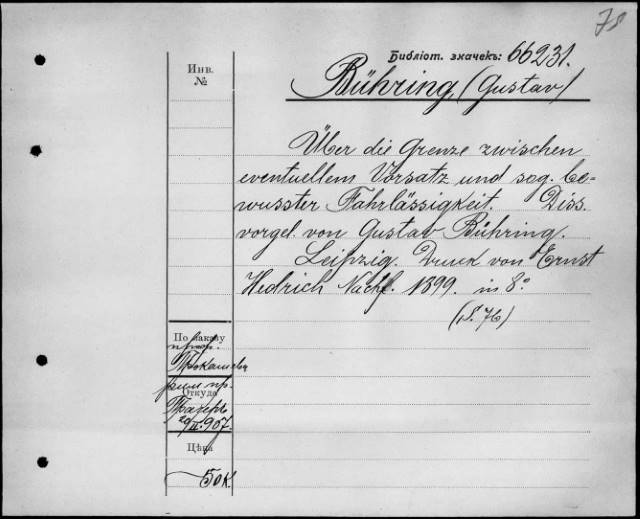 78
Библіот. значекъ: 66231.
Инв.
№
Bühring, (Gustav)
Über die Grenze zwischen
eventuellem Vorsatz und sog. be-
wusster Fahrlässigkeit. Diss.
vorgel. von Gustav Bühring.
Leipzig. Druck von Ernst
Hedrich Nachf. 1899. in 8º
(S. 76)
По заказу
Откуда
907.
Цѣна
50 к.